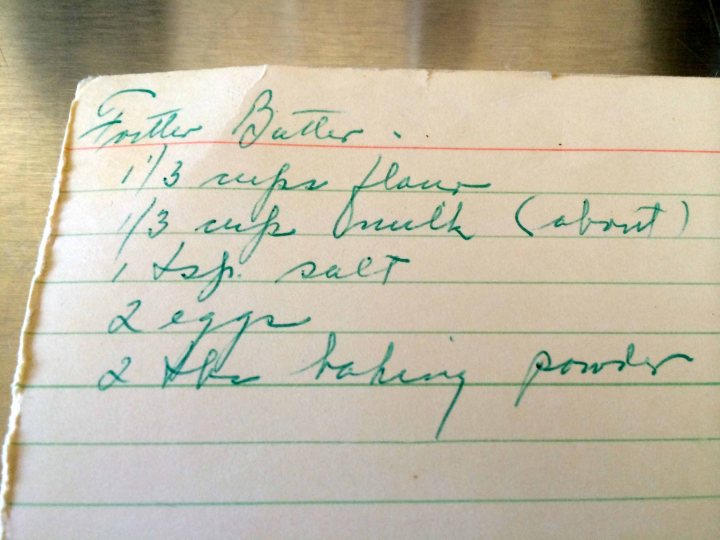 Fritter Batter.
1 1/3 cups flour
1/3 cup milk (about)
1 tsp. salt
2 eggs
2 tbs baking powder